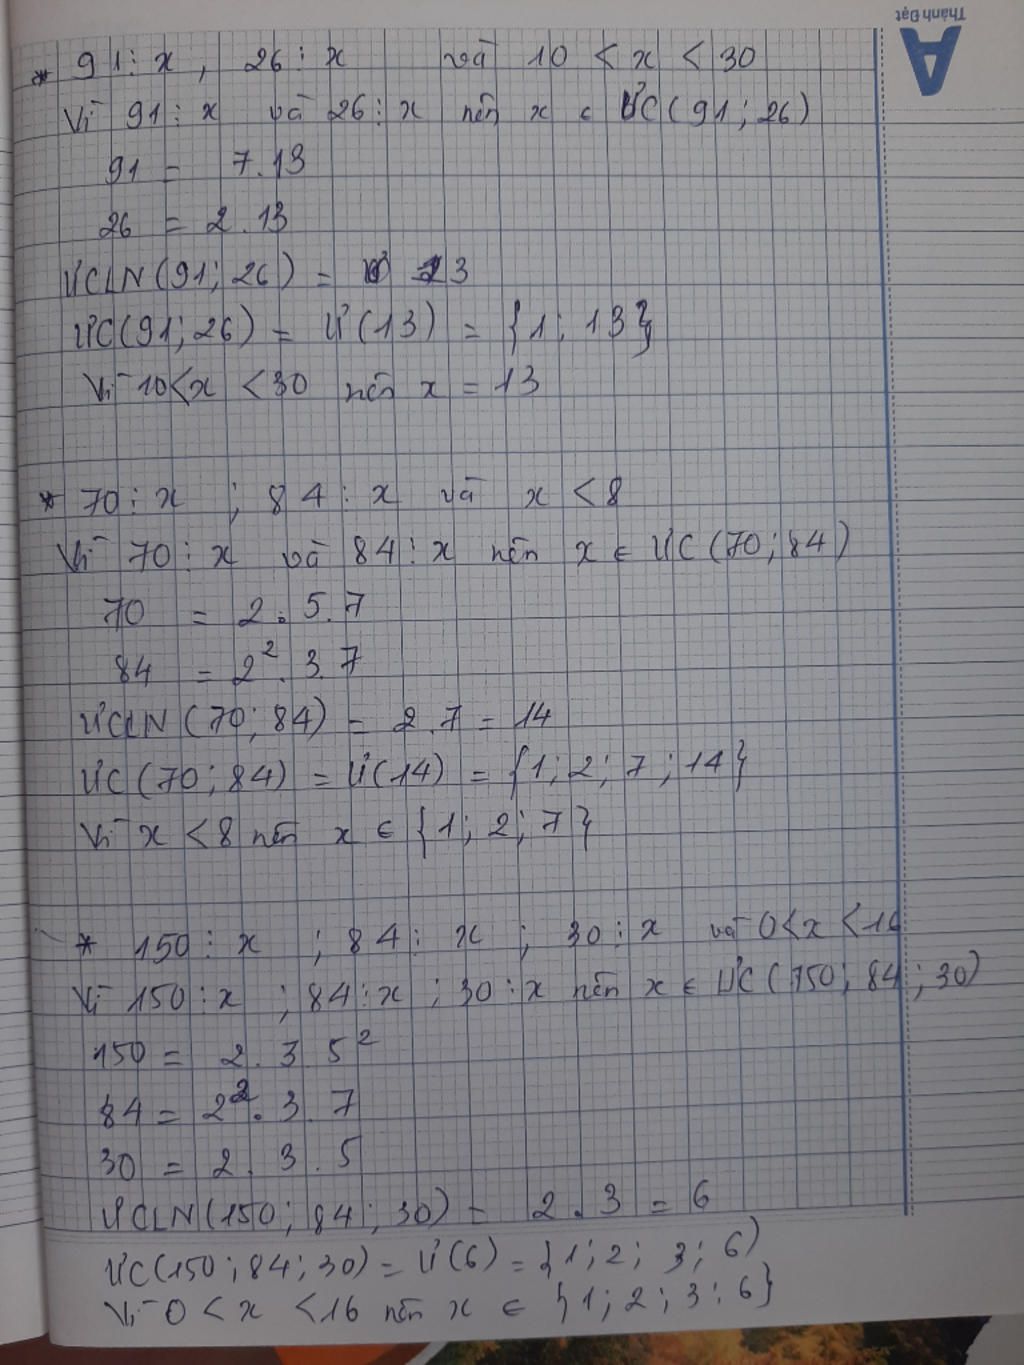 Thành Đạt
* 91 ⋮ x , 26 ⋮ x và 10 < x < 30
Vì 91 ⋮ x và 26 ⋮ x nên x ∈ ƯC(91; 26)
91 = 7.13
26 = 2.13
ƯCLN(91; 26) = 13
ƯC(91; 26) = Ư(13) = {1; 13}
Vì 10 < x < 30 nên x = 13
* 70 ⋮ x ; 84 ⋮ x và x < 8
Vì 70 ⋮ x và 84 ⋮ x nên x ∈ ƯC(70; 84)
70 = 2.5.7
84 = 2².3.7
ƯCLN(70; 84) = 2.7 = 14
ƯC(70; 84) = Ư(14) = {1; 2; 7; 14}
Vì x < 8 nên x ∈ {1; 2; 7}
* 150 ⋮ x ; 84 ⋮ x ; 30 ⋮ x và 0 < x < 16
Vì 150 ⋮ x ; 84 ⋮ x ; 30 ⋮ x nên x ∈ ƯC(150; 84; 30)
150 = 2.3.5²
84 = 2².3.7
30 = 2.3.5
ƯCLN(150; 84; 30) = 2.3 = 6
ƯC(150; 84; 30) = Ư(6) = {1; 2; 3; 6}
Vì 0 < x < 16 nên x ∈ {1; 2; 3; 6}